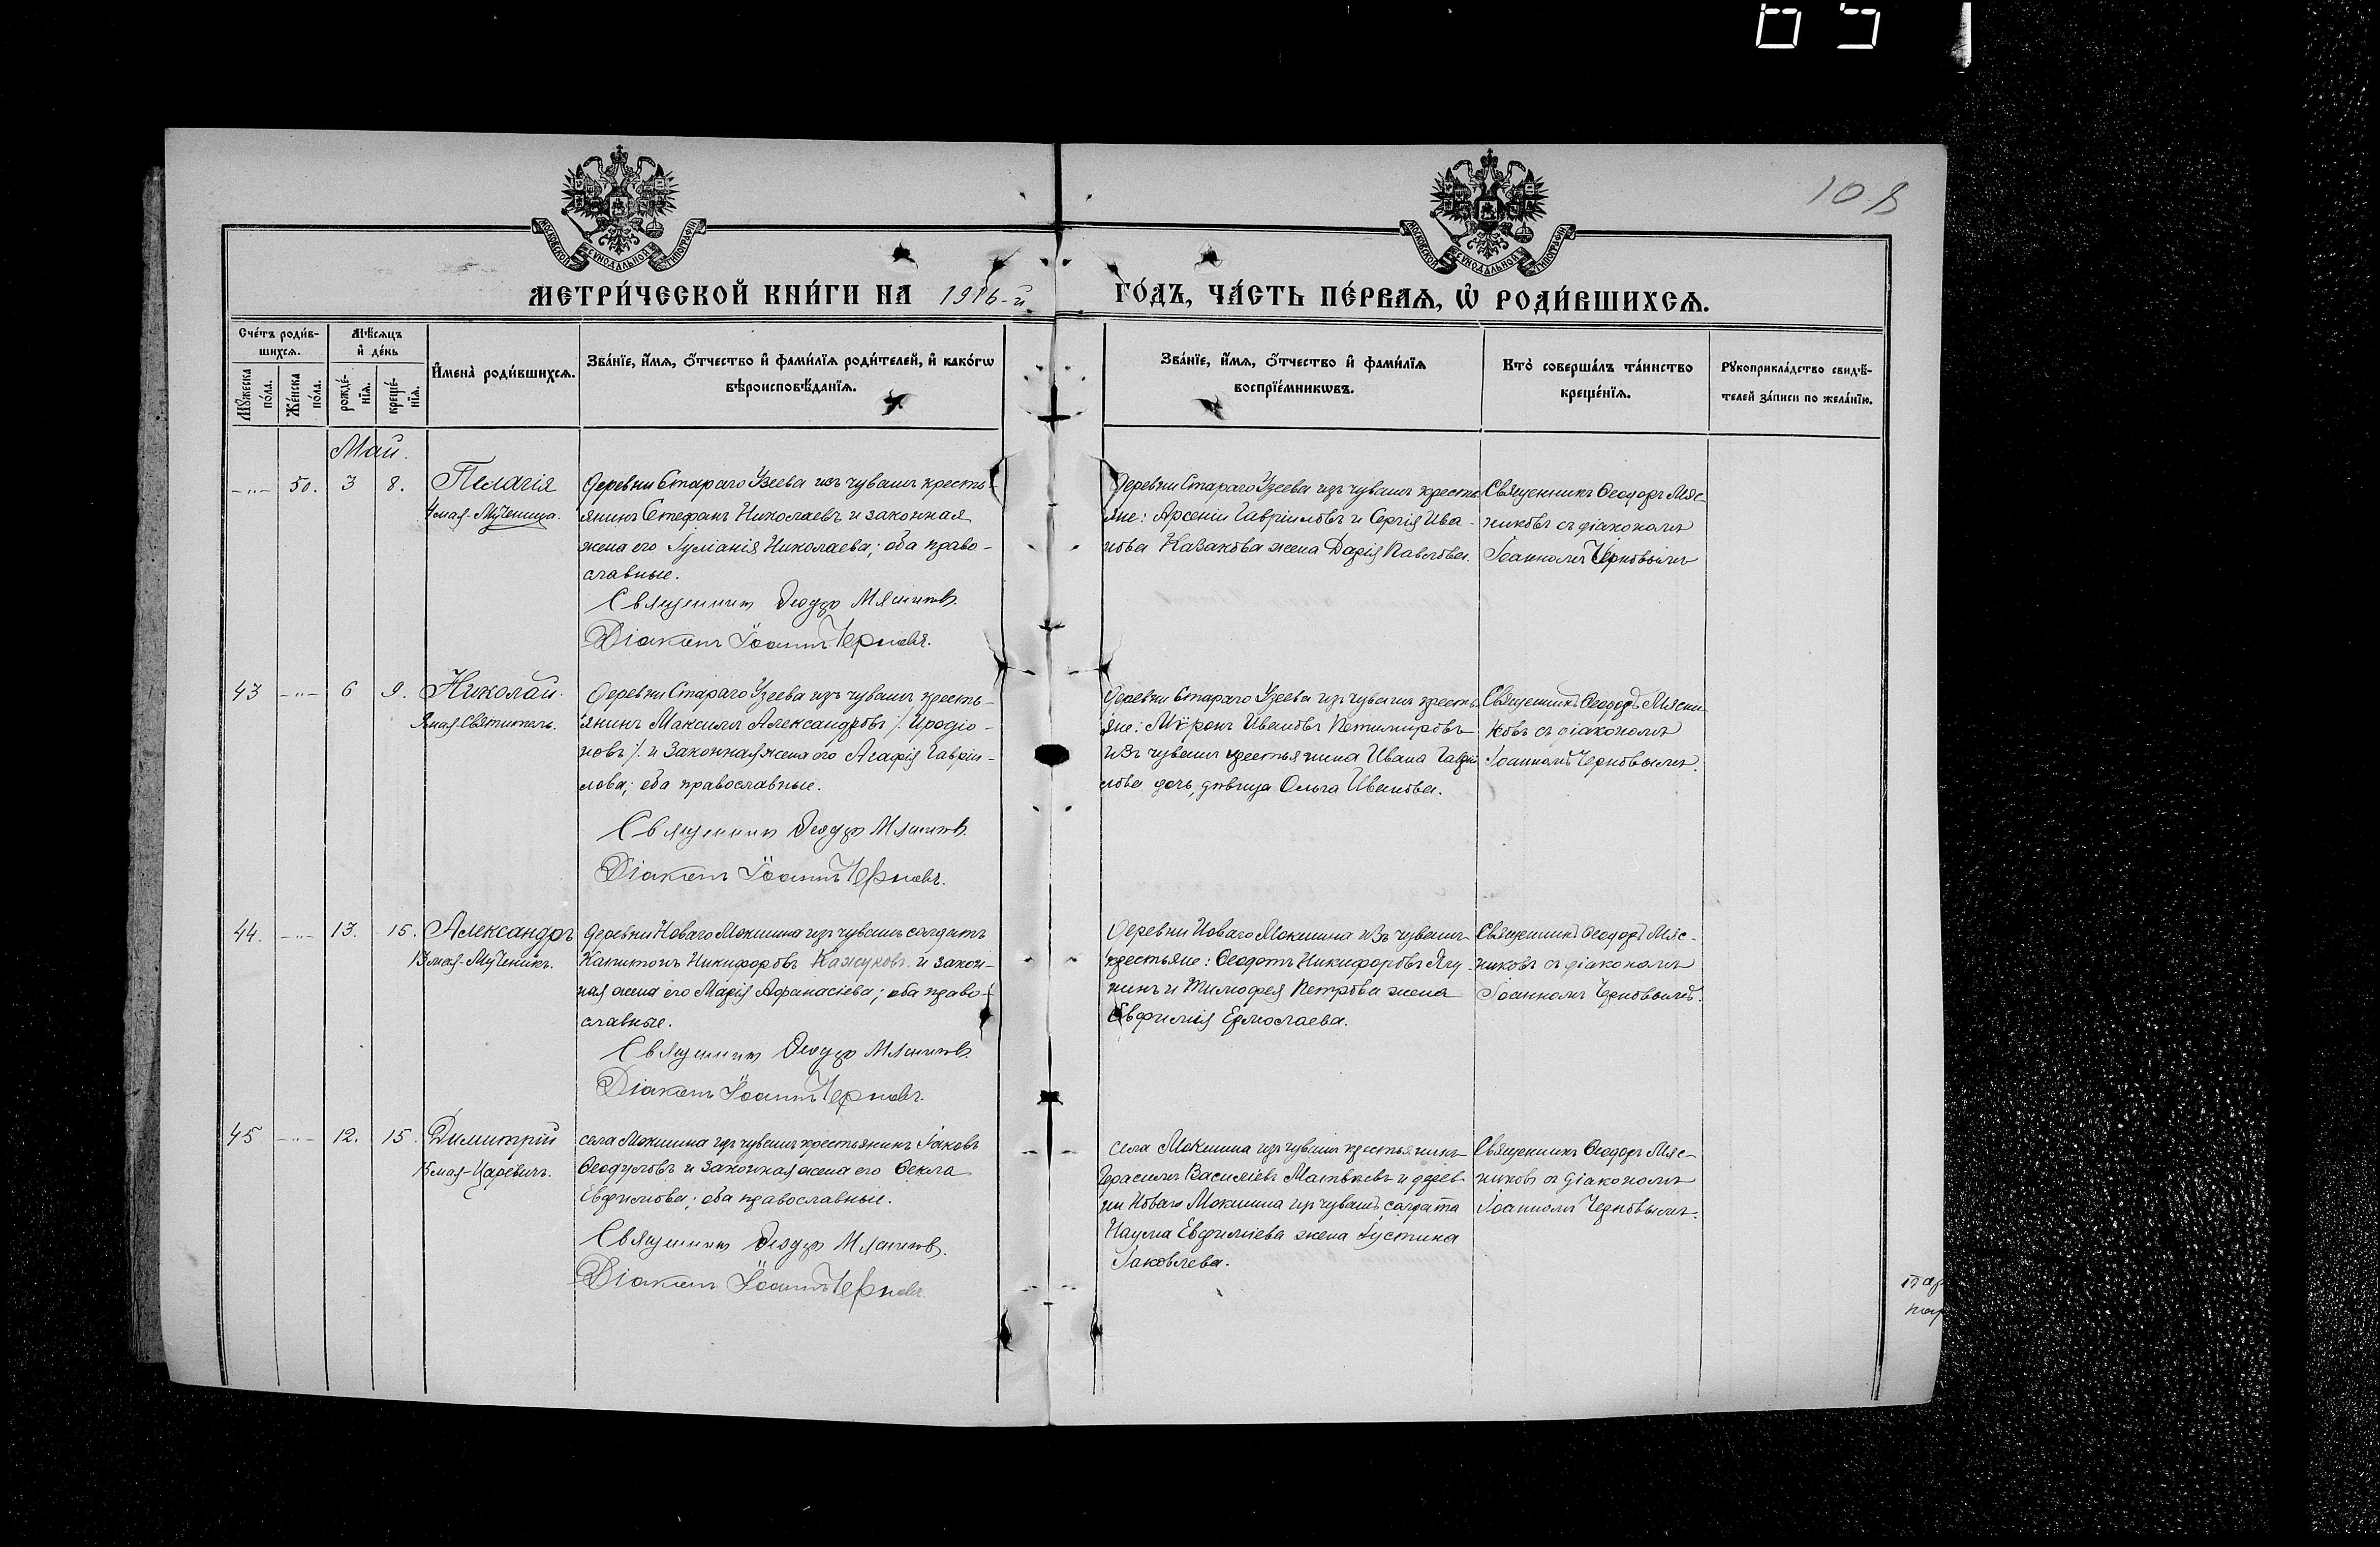 108
МОСКОВСКОЙ СѴНОДАЛЬНОЙ ТИПОГРАФІИ
МОСКОВСКОЙ СѴНОДАЛЬНОЙ ТИПОГРАФІИ
МЕТРИ́ЧЕСКОЙ КНИ́ГИ НА 1916-й ГО́ДЪ, ЧА́СТЬ ПЕ́РВАѦ, Ѡ҆ РОДИ́ВШИХСѦ.
Сче́тъ роди́в-
шихсѧ.
Мꙋ́жеска по́ла.
Же́нска по́ла.
Мѣ́сѧцъ
и҆ де́нь
рожде́-
нїѧ.
креще́-
нїѧ.
И҆мена̀ роди́вшихсѧ.
Зва́нїе, и҆́мѧ, ѻ҆́тчество и҆ фами́лїѧ роди́телей, и҆ како́гѡ
вѣроисповѣ́данїѧ.
Зва́нїе, и҆́мѧ, ѻ҆́тчество и҆ фами́лїѧ
воспрїе́мникѡвъ.
Кто̀ соверша́лъ та́инство
креще́нїѧ.
Рꙋкоприкла́дство свидѣ́-
телей за́писи по жела́нїю.
Май.
-"- 50. 3 8. Пелагія
4 мая-Мученица.
Деревни Стараго Узеева изъ чувашъ кресть-
янинъ Стефанъ Николаевъ и законная
жена его Іуліанія Николаева; оба право-
славные.
Священникъ Ѳеодоръ Мясниковъ.
Діаконъ Іоаннъ Черновъ.
Деревни Стараго Узеева изъ чувашъ кресть
яне: Арсеній Гавріиловъ и Сергія Ива-
нова Казакова жена Дарія Павлова.
Священникъ Ѳеодоръ Мяс-
никовъ съ діакономъ
Іоанномъ Черновымъ
43 -"- 6 9. Николай.
9 мая-Святитель.
Деревни Стараго Узеева изъ чувашъ кресть-
янинъ Максимъ Александровъ /. Иродіо-
новъ /. и законная жена его Агафія Гавріи-
лова; оба православные.
Священникъ Ѳеодоръ Мясниковъ.
Діаконъ Іоаннъ Черновъ.
Деревни Стараго Узеева изъ чувашъ кресть
яне: Мѵронъ Ивановъ
изъ чувашъ крестьянина Ивана Гаврі
лова дочь, дѣвица Ольга Иванова.
Священникъ Ѳеодоръ Мясни
ковъ съ діакономъ
Іоанномъ Черновымъ.
44. -"- 13. 15. Александръ
13 мая-Мученикъ.
Деревни Новаго Мокшина изъ чувашъ солдатъ
Капитонъ Никифоровъ Кажуковъ и закон-
ная жена его Марія Афанасіева; оба право-
славные.
Священникъ Ѳеодоръ Мясниковъ.
Діаконъ Іоаннъ Черновъ.
Деревни Новаго Мокшина изъ чувашъ
крестьяне: Ѳеодотъ Никифоровъ Ягу-
нинъ и Тимофея Петрова жена
Евфимія Ермолаева.
Священникъ Ѳеодоръ Мяс-
никовъ съ діакономъ
Іоанномъ Черновымъ.
45 -"- 12. 15. Димитрій
15 мая-Царевичъ.
села Мокшина изъ чувашъ крестьянинъ Іаковъ
Ѳеодуловъ и законная жена его Ѳекла
Евфимова; оба православные.
Священникъ Ѳеодоръ Мясниковъ.
Діаконъ Іоаннъ Черновъ.
села Мокшина изъ чувашъ крестьянинъ
Герасимъ Василіевъ Матвѣевъ и дерев-
ни Новаго Мокшина изъ чувашъ солдата
Наума Евфиміева жена Іустина
Іаковлева.
Священникъ Ѳеодоръ Мяс-
никовъ съ діакономъ
Іоанномъ Черновымъ.